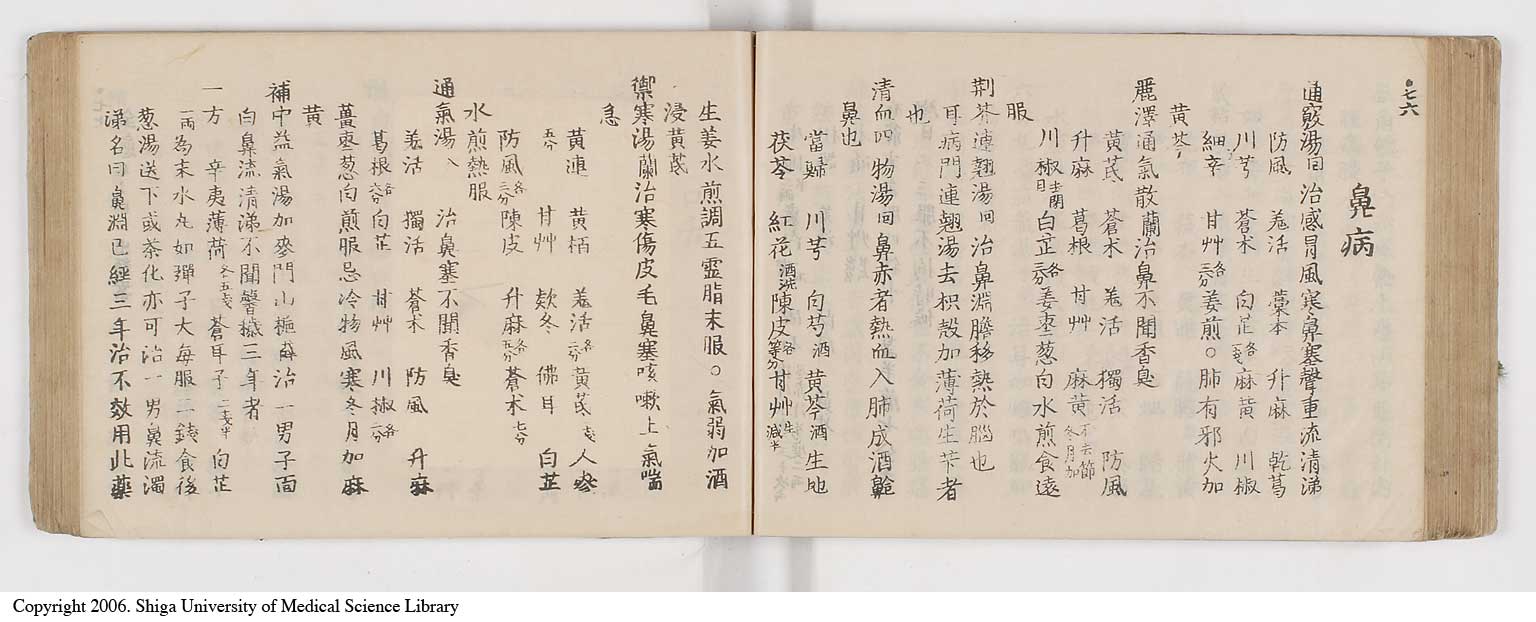 七六
鼻病
通竅湯囘治感冒風寒鼻塞聲重流清涕
防風 羗活 藁本 升麻 乾葛
川芎 蒼朮 白芷各一戔麻黄 川椒
細辛 甘艸各三分姜煎○肺有邪火加
黄芩
麗澤通氣散蘭治鼻不聞香臭
黄芪 蒼朮 羗活 獨活 防風
升麻 葛根 甘艸 麻黄不去節冬月加
川椒 白芷各三分姜枣葱白水煎食遠
服
荆芥連翹湯囘治鼻淵膽移熱於腦也
耳病門連翹湯去枳殻加薄荷生芐者
也
清血四物湯囘鼻赤者熱血入肺成酒齄
鼻也
當歸 川芎 白芍酒黄芩酒生地
茯苓 紅花酒洗陳皮各等分甘艸生減半
生姜水煎調五靈脂末服○氣弱加酒
浸黄芪
禦寒湯蘭治寒傷皮毛鼻塞咳嗽上氣喘
急
黄連 黄栢 羗活各二分黄芪一戔人參
五分 甘艸 欵冬 佛耳 白芷
防風各三分陳皮 升麻各五分蒼朮七分
水煎熱服
通氣湯〻 治鼻塞不聞香臭
羗活 獨活 蒼朮 防風 升麻
葛根各六分白芷 甘艸 川椒各二分
薑枣葱白煎服忌冷物風寒冬月加麻
黄
補中益氣湯加麥門山梔 治一男子面
白鼻流清涕不聞馨穢三年者
一方 辛夷薄荷各五戔蒼耳子二戔半白芷
一兩為末水丸如彈子大每服二錢食後
葱湯送下或茶化亦可治一男鼻流濁
涕名曰鼻淵已經三年治不效用此藥
Copyright 2006. Shiga University of Medical Science Library